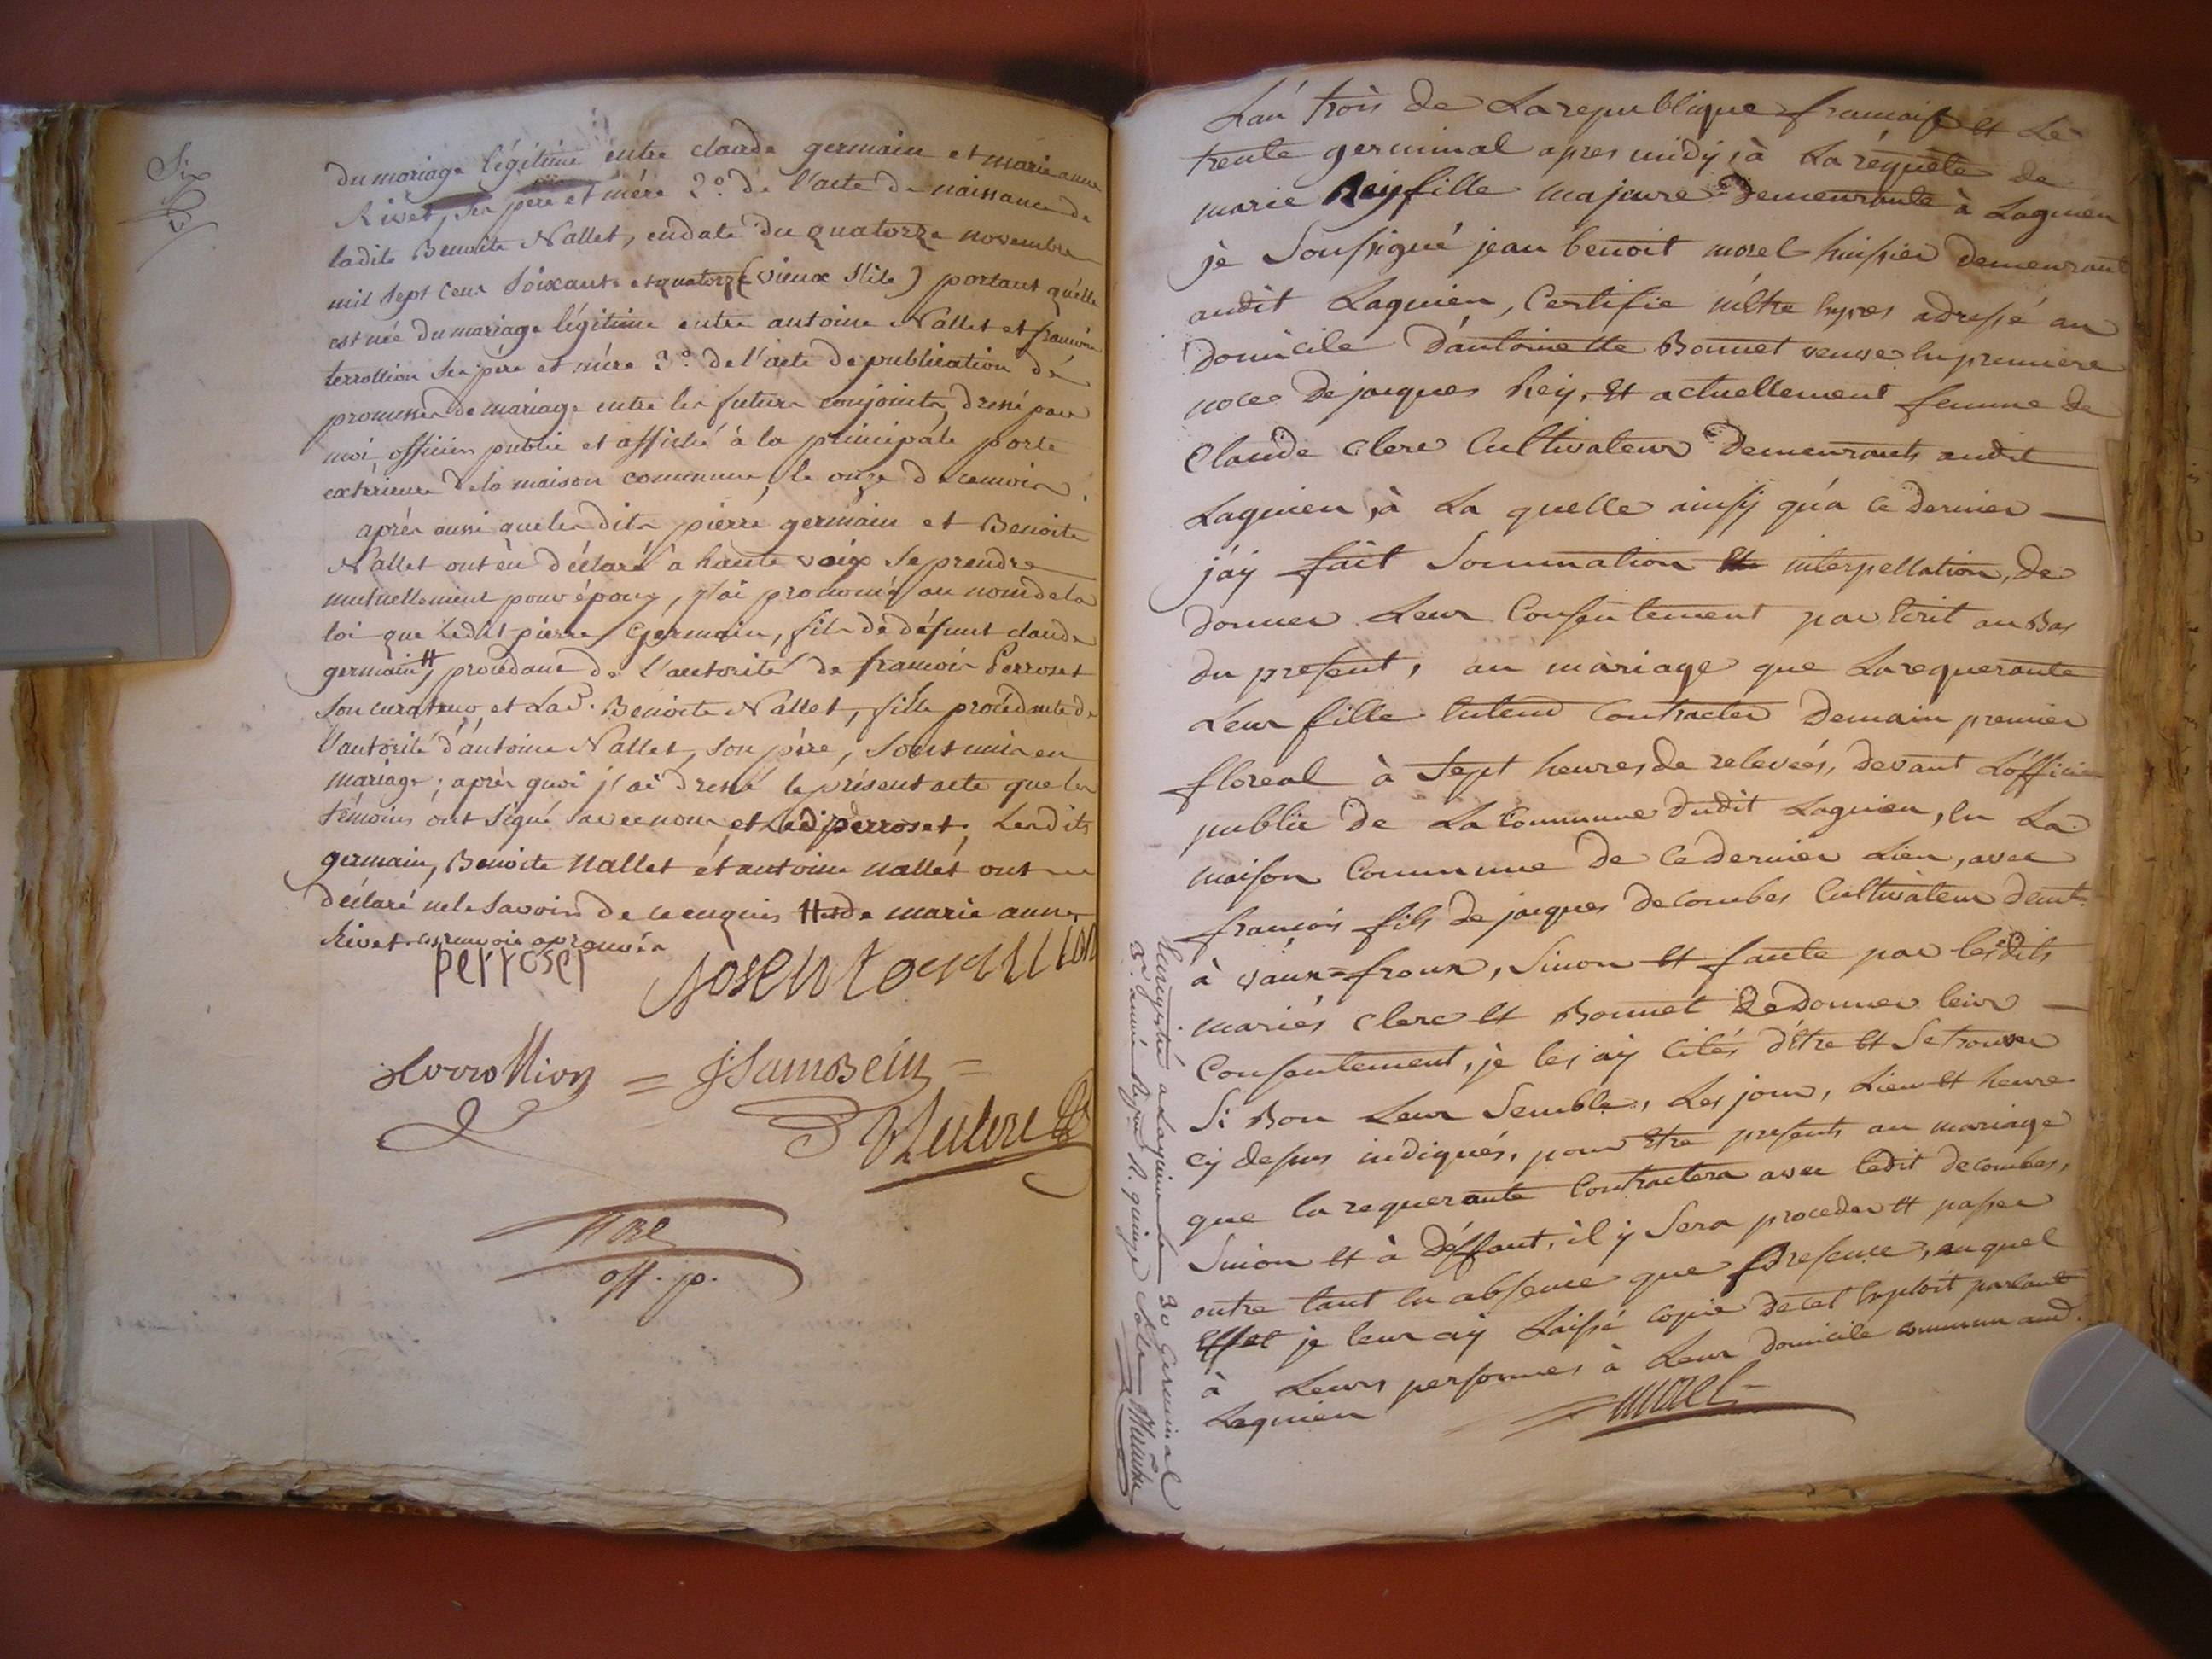 Six
du mariage légitime entre claude germain et marie anne
Rivet, ses père et mère 2.° de l'acte de naissance de
ladite Benoite Nallet, en date du quatorze novembre
mil sept cent soixante et quatorze (vieux stile) portant qu'elle
est née du mariage légitime entre antoine Nallet et françoise
terrollion ses père et mère 3.° de l'acte de publication de
promesses de mariage entre les futurs conjoints, dressé par
moi officier public et affiché à la principale porte
extérieure de la maison commune, le onze de ce mois.
après aussi que les dits pierre germain et Benoite
Nallet ont eû déclaré à haute voix se prendre
mutuellement pour époux, j'ai prononcé au nom de la
loi que Ledit pierre Germain, fils de défunt claude
germain # procédant de l'autorité de francois Perroset
son curateur, et Lad. Benoite Nallet, fille procédante de
l'autorité d'antoine Nallet, son père, sont unis en
mariage; après quoi j'ai dressé le présent acte que les
témoins ont signé avec nous, et Led. perroset. Lesdits
germain, Benoite nallet et antoine nallet ont
déclaré ne le savoir de ce enquis # de marie anne
Rivet
perroset
terrollion
off. p.
L'an trois de La republique francaise et Le
trente germinal apres midy, à La réquete de
marie Rey fille majeure Demeurante à Lagnieu
jè Soussigné jean benoit morel huissier demeurant
audit Lagnieu, Certifie m'étre expres adressé au
Domicile D'antoinette Bonnet veuve en premiere
noces De jacques Rey, et actuellement femme de
Claude clerc Cultivateur Demeurants audit
Lagnieu, à La quelle ainsy qu'a ce dernier
j'ay fait Sommation et interpellation, de
donner Leur Consentement par Ecrit au Bas
du present, au mariage que La requerante
Leur fille Entend Contracter Demain premier
floreal à Sept heures de relevées, devant L'officier
public de La Commune dudit Lagnieu, en La
maison Commune de ce dernier Lieu, avec
francois fils de jacques decombes Cultivateur demt.
à vaux-froux, Sinon et faute par lesdits
mariés clerc et Bonnet De donner leur
Consentement, je les ay cités d'étre et Se trouver
Si Bon Leur Semble, Les jour, Lieu et heure
cy dessus indiqués, pour Etre presents au mariage
que la requerante Contractera avec ledit decombes,
Sinon et à déffaut, il y Sera proceder et passer
outre tant en absence que presence, au quel
Effet je leur ay Laissé copie de cet Exploit parlant
à Leurs personnes à Leur domicile commun aud.
Lagnieu
morel
Enregistré a Lagnieu Le 30 Germinal
3e. année R. quinze Sols